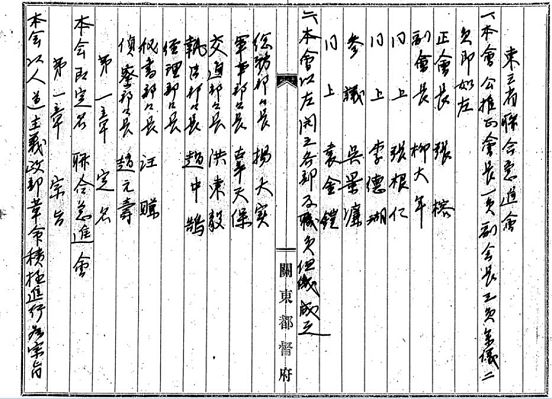 東三省聯合急進會
一、本會公推正會長一員副會長二員參議二
員即如左
正會長 張榕
副會長 柳大年
同上 張根仁
同上 李德瑚
參議 吳景濂
同上 袁金鎧
六、本會以左開之各部及職員組織成立
關東都督府
總務部々長 楊大實
軍事部々長 李天保
交通部々長 洪東毅
執法部々長 趙中鵠
經理部々長
秘書部々長 汪
偵察部々長 趙元壽
第一章 定名
本會即定名 聯合急進會
第二章 宗旨
本會以人道主義政部革命積極進行為宗旨